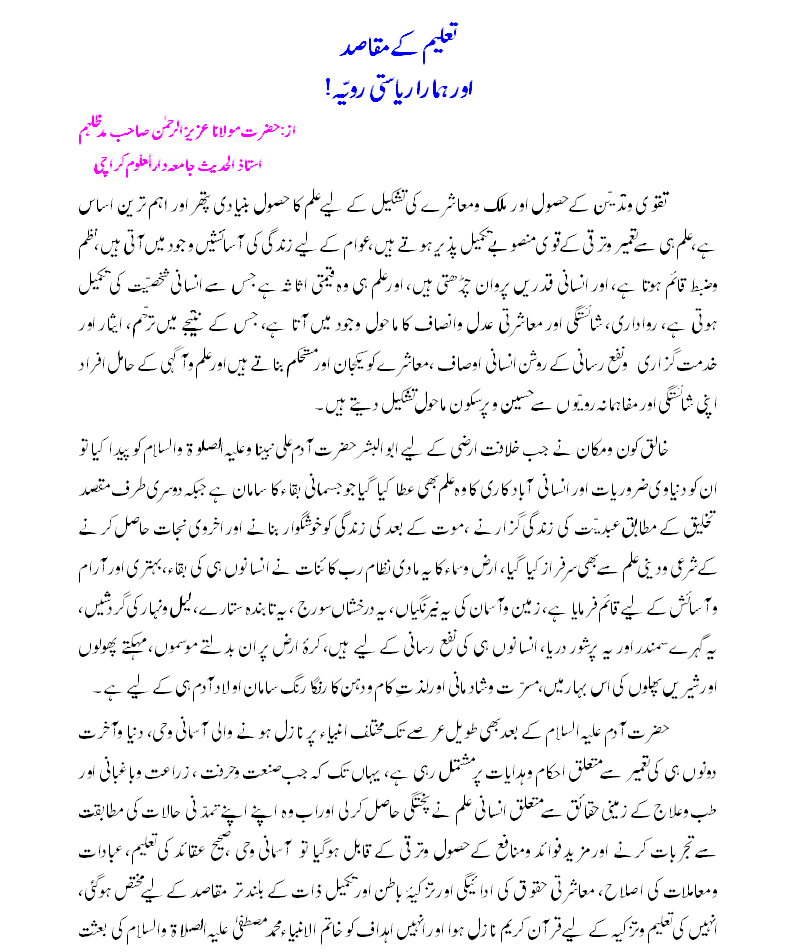 تعلیم کے مقاصد
اور ہمارا ریاستی رویّہ!
از: حضرت مولانا عزیز الرحمٰن صاحب مدظلہم
استاذ الحدیث جامعہ دارالعلوم کراچی
تقوی وتدیّن کے حصول اور ملک ومعاشرے کی تشکیل کے لیے علم کا حصول بنیادی پتھر اور اہم ترین اساس
ہے، علم ہی سے تعمیر وترقی کے قومی منصوبے تکمیل پذیر ہوتے ہیں، عوام کے لیے زندگی کی آسائشیں وجود میں آتی ہیں، نظم
وضبط قائم ہوتا ہے، اور انسانی قدریں پروان چڑھتی ہیں، اور علم ہی وہ قیمتی اثاثہ ہے جس سے انسانی شخصیّت کی تکمیل
ہوتی ہے، رواداری، شائستگی اور معاشرتی عدل وانصاف کا ماحول وجود میں آتا ہے، جس کے نتیجے میں ترحّم، ایثار اور
خدمت گزاری ونفع رسانی کے روشن انسانی اوصاف، معاشرے کو یکجان اور مستحکم بناتے ہیں اور علم وآگہی کے حامل افراد
اپنی شائستگی اور مفاہمانہ رویّوں سے حسین وپرسکون ماحول تشکیل دیتے ہیں۔
خالق کون ومکان نے جب خلافت ارضی کے لیے ابو البشر حضرت آدم علی نبینا وعلیہ الصلوۃ والسلام کو پیدا کیا تو
ان کو دنیاوی ضروریات اور انسانی آبادکاری کا وہ علم بھی عطا کیا گیا جو جسمانی بقاء کا سامان ہے جبکہ دوسری طرف مقصد
تخلیق کے مطابق عبدیّت کی زندگی گزارنے، موت کے بعد کی زندگی کو خوشگوار بنانے اور اخروی نجات حاصل کرنے
کے شرعی ودینی علم سے بھی سرفراز کیا گیا، ارض وسماء کا یہ مادی نظام رب کائنات نے انسانوں ہی کی بقاء، بہتری اور آرام
وآسائش کے لیے قائم فرمایا ہے، زمین وآسمان کی یہ نیرنگیاں، یہ درخشاں سورج، یہ تابندہ ستارے، لیل ونہار کی گردشیں،
یہ گہرے سمندر اور یہ پرشور دریا، انسانوں ہی کی نفع رسانی کے لیے ہیں، کرۂ ارض پر ان بدلتے موسموں، مہکتے پھولوں
اور شیریں پھلوں کی اس بہار میں، مسرّت وشادمانی اور لذتِ کام ودہن کا رنگا رنگ سامان اولاد آدم ہی کے لیے ہے۔
حضرت آدم علیہ السلام کے بعد بھی طویل عرصے تک مختلف انبیاء پر نازل ہونے والی آسمانی وحی، دنیا وآخرت
دونوں ہی کی تعمیر سے متعلق احکام وہدایات پر مشتمل رہی ہے، یہاں تک کہ جب صنعت وحرفت، زراعت وباغبانی اور
طب وعلاج کے زمینی حقائق سے متعلق انسانی علم نے پختگی حاصل کرلی اور اب وہ اپنے اپنے تمدّنی حالات کی مطابقت
سے تجربات کرنے اور مزید فوائد ومنافع کے حصول وترقی کے قابل ہوگیا تو آسمانی وحی، صحیح عقائد کی تعلیم، عبادات
ومعاملات کی اصلاح، معاشرتی حقوق کی ادائیگی اور تزکیۂ باطن اور تکمیل ذات کے بلند تر مقاصد کے لیے مختص ہوگئی،
انہیں کی تعلیم وتزکیہ کے لیے قرآن کریم نازل ہوا اور انہیں اہداف کو خاتم الانبیاء محمد مصطفیٰ علیہ الصلاۃ والسلام کی بعثت